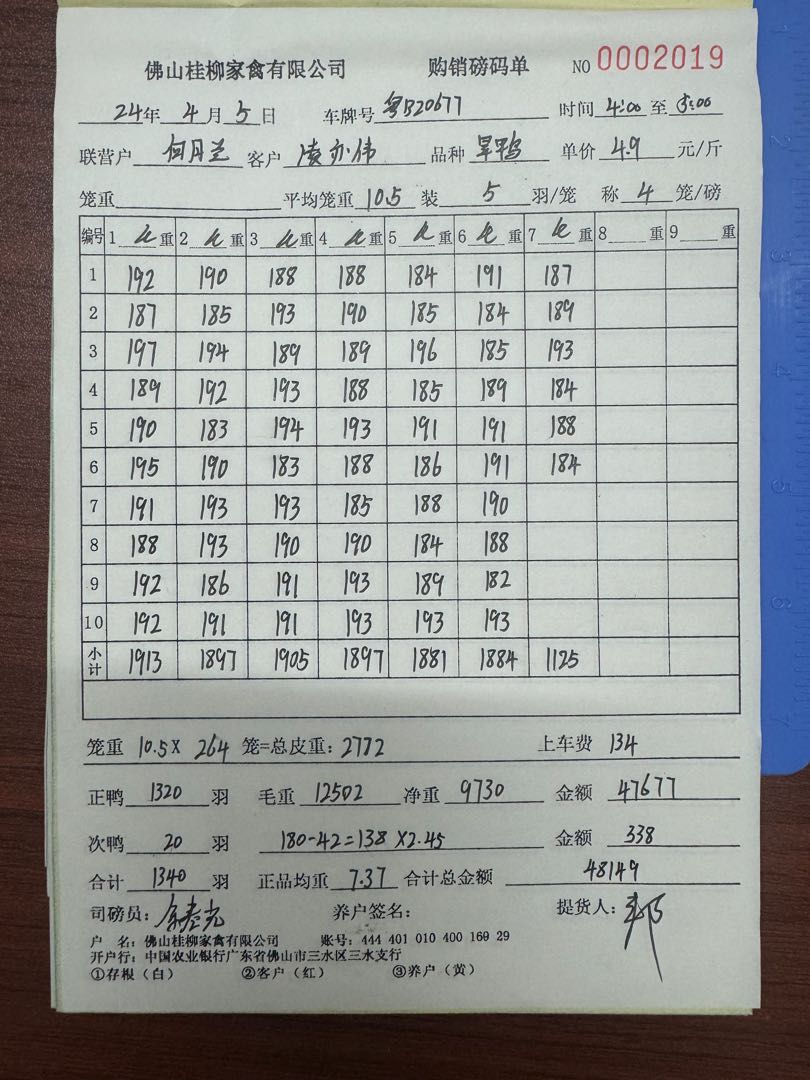 佛山桂柳家禽有限公司 购销磅码单 NO 0002019
24年 4月 5日 车牌号 粤B20677 时间 4:00 至 5:00
联营户 何月兰 客户 凌亦伟 品种 旱鸭 单价 4.9 元/斤
笼重 平均笼重 10.5 装 5 羽/笼 称 4 笼/磅
编号 1 重 2 重 3 重 4 重 5 重 6 重 7 重 8 重 9 重
1 192 190 188 188 184 191 187
2 187 185 193 190 185 184 189
3 197 194 189 189 196 185 193
4 189 192 193 188 185 189 184
5 190 183 194 193 191 191 188
6 195 190 183 188 186 191 184
7 191 193 193 185 188 190
8 188 193 190 190 184 188
9 192 186 191 193 189 182
10 192 191 191 193 193 193
小计 1913 1897 1905 1897 1881 1884 1125
笼重 10.5 X 264 笼=总皮重: 2772 上车费 134
正鸭 1320 羽 毛重 12502 净重 9730 金额 47677
次鸭 20 羽 180-42=138 X2.45 金额 338
合计 1340 羽 正品均重 7.37 合计总金额 48149
司磅员: 养户签名: 提货人:
户 名: 佛山桂柳家禽有限公司 账号: 444 401 010 400 160 29
开户行: 中国农业银行广东省佛山市三水区三水支行
①存根(白) ②客户(红) ③养户(黄)